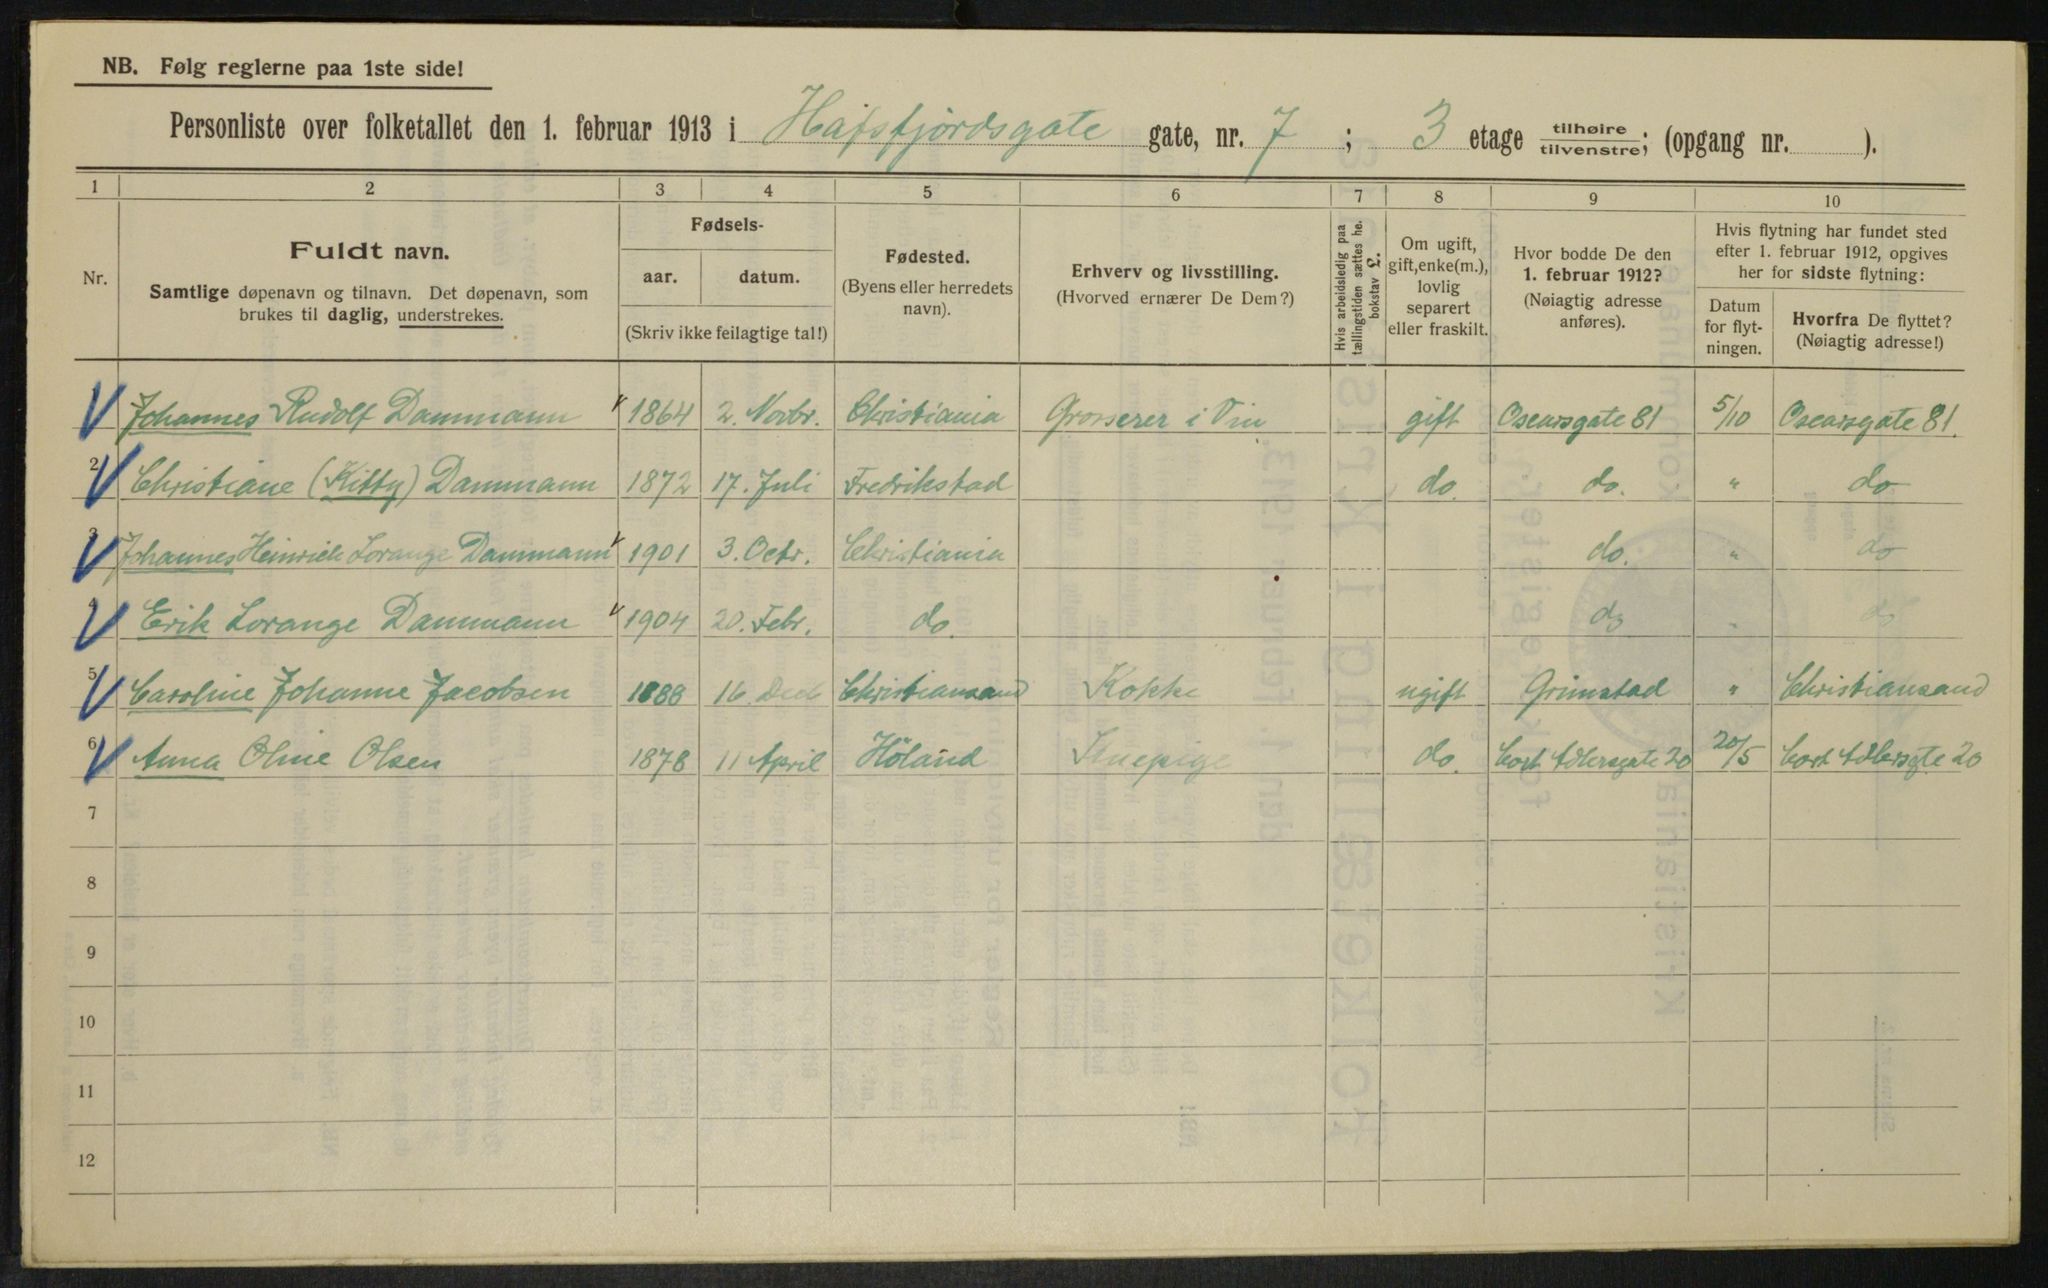 NB. Følg reglerne paa 1ste side!
Personliste over folketallet den 1. februar 1913 i Hafsfjordsgate gate, nr. 7 ; 3 etage tilhøire tilvenstre; (opgang nr. ).
1 2 3 4 5 6 7 8 9 10
Nr.
Fuldt navn.
Samtlige døpenavn og tilnavn. Det døpenavn, som
brukes til daglig, understrekes.
Fødsels-
aar. datum.
(Skriv ikke feilagtige tal!)
Fødested.
(Byens eller herredets
navn).
Erhverv og livsstilling.
(Hvorved ernærer De Dem?)
Hvis arbeidsledig paa
tællingstiden sættes he.
bokstav L.
Om ugift,
gift, enke(m.),
lovlig
separert
eller fraskilt.
Hvor bodde De den
1. februar 1912?
(Nøiagtig adresse
anføres).
Hvis flytning har fundet sted
efter 1. februar 1912, opgives
her for sidste flytning:
Datum
for flyt-
ningen.
Hvorfra De flyttet?
(Nøiagtig adresse!)
Johannes Rudolf Dammann 1864 2. Novbr. Christiania Grosserer i Vin gift Oscarsgate 81 5/10 Oscarsgate 81.
2 Christiane (Kitty) Dammann 1872 17. Juli Fredrikstad do. do. " do
3 Johannes Heinrich Lorange Dammann 1901 3. Octr. Christiania do. " do
4 Erik Lorange Dammann 1904 20. Febr. do. do " do
5 Caroline Johanne Jacobsen 1888 16. Dec Christiansand Kokke ugift Grimstad " Christiansand
6 Anna Oline Olsen 1878 11 April Höland Stuepige do. Cort Adlersgate 20 20/5 Cort Adlersgte 20
7
8
9
10
11
12